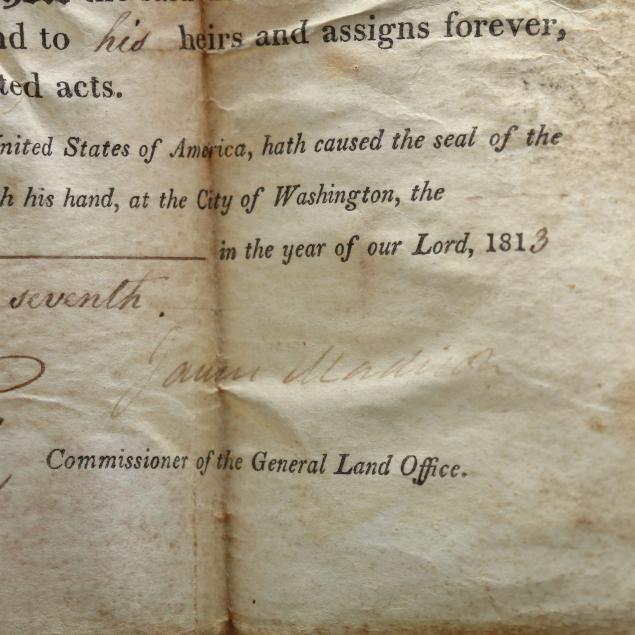 nd to his heirs and assigns forever,
ted acts.
nited States of America, hath caused the seal of the
h his hand, at the City of Washington, the
in the year of our Lord, 1813
seventh.
James Madison
Commissioner of the General Land Office.